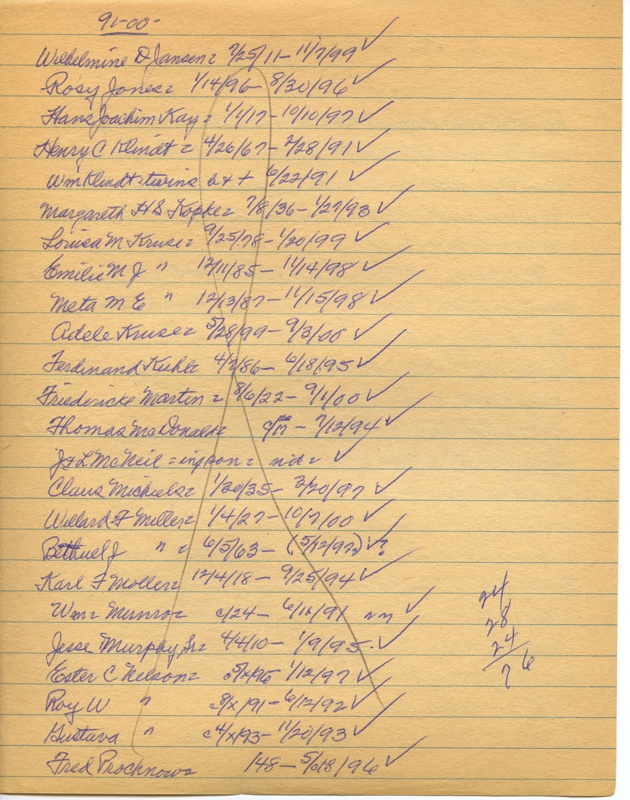 91-00-
Wilhelmine D Jansen= 7/25/11-11/7/99 ✓
Rosy Jones= 1/14/96-8/30/96 ✓
Hans Joachim Kay= 1/1/17-10/10/97 ✓
Henry C Klindt= 4/26/67-2/28/91 ✓
Wm Klindt=twins b++ 6/22/91 ✓
Margareth H S Kopke= 7/8/36-1/27/93 ✓
Louisa M Kruse= 9/25/78-1/20/99 ✓
Emilie M J " 12/11/85-11/14/98 ✓
Meta M E " 12/13/87-11/15/98 ✓
Adele Kruse= 5/28/99-9/3/00 ✓
Ferdinand Kuhl= 4/7/86-6/18/95 ✓
Friedericke Martin= 8/6/22-9/1/00 ✓
Thomas McDonald= 7/12/94 ✓
J+L McNeil= = nid= ✓
Claus Michiels= 1/30/35-3/20/97 ✓
Willard F Miller= 1/4/27-10/7/00 ✓
Bethuel J " = 6/5/63-(5/12/97=) ✓?
Karl F Moller= 12/4/18-9/25/94 ✓
Wm= Munro= c/24-6/16/91 nn ✓
Jesse Murphy, Sr= 4/4/10-1/9/95- ✓
Ester C Nelson= 1/12/97 ✓
Roy W " c8/x/91-6/12/92 ✓
Gustava " c4/x/93-11/20/93 ✓
Fred Prochnow= /48-5/18/96 ✓
24
28
24
76